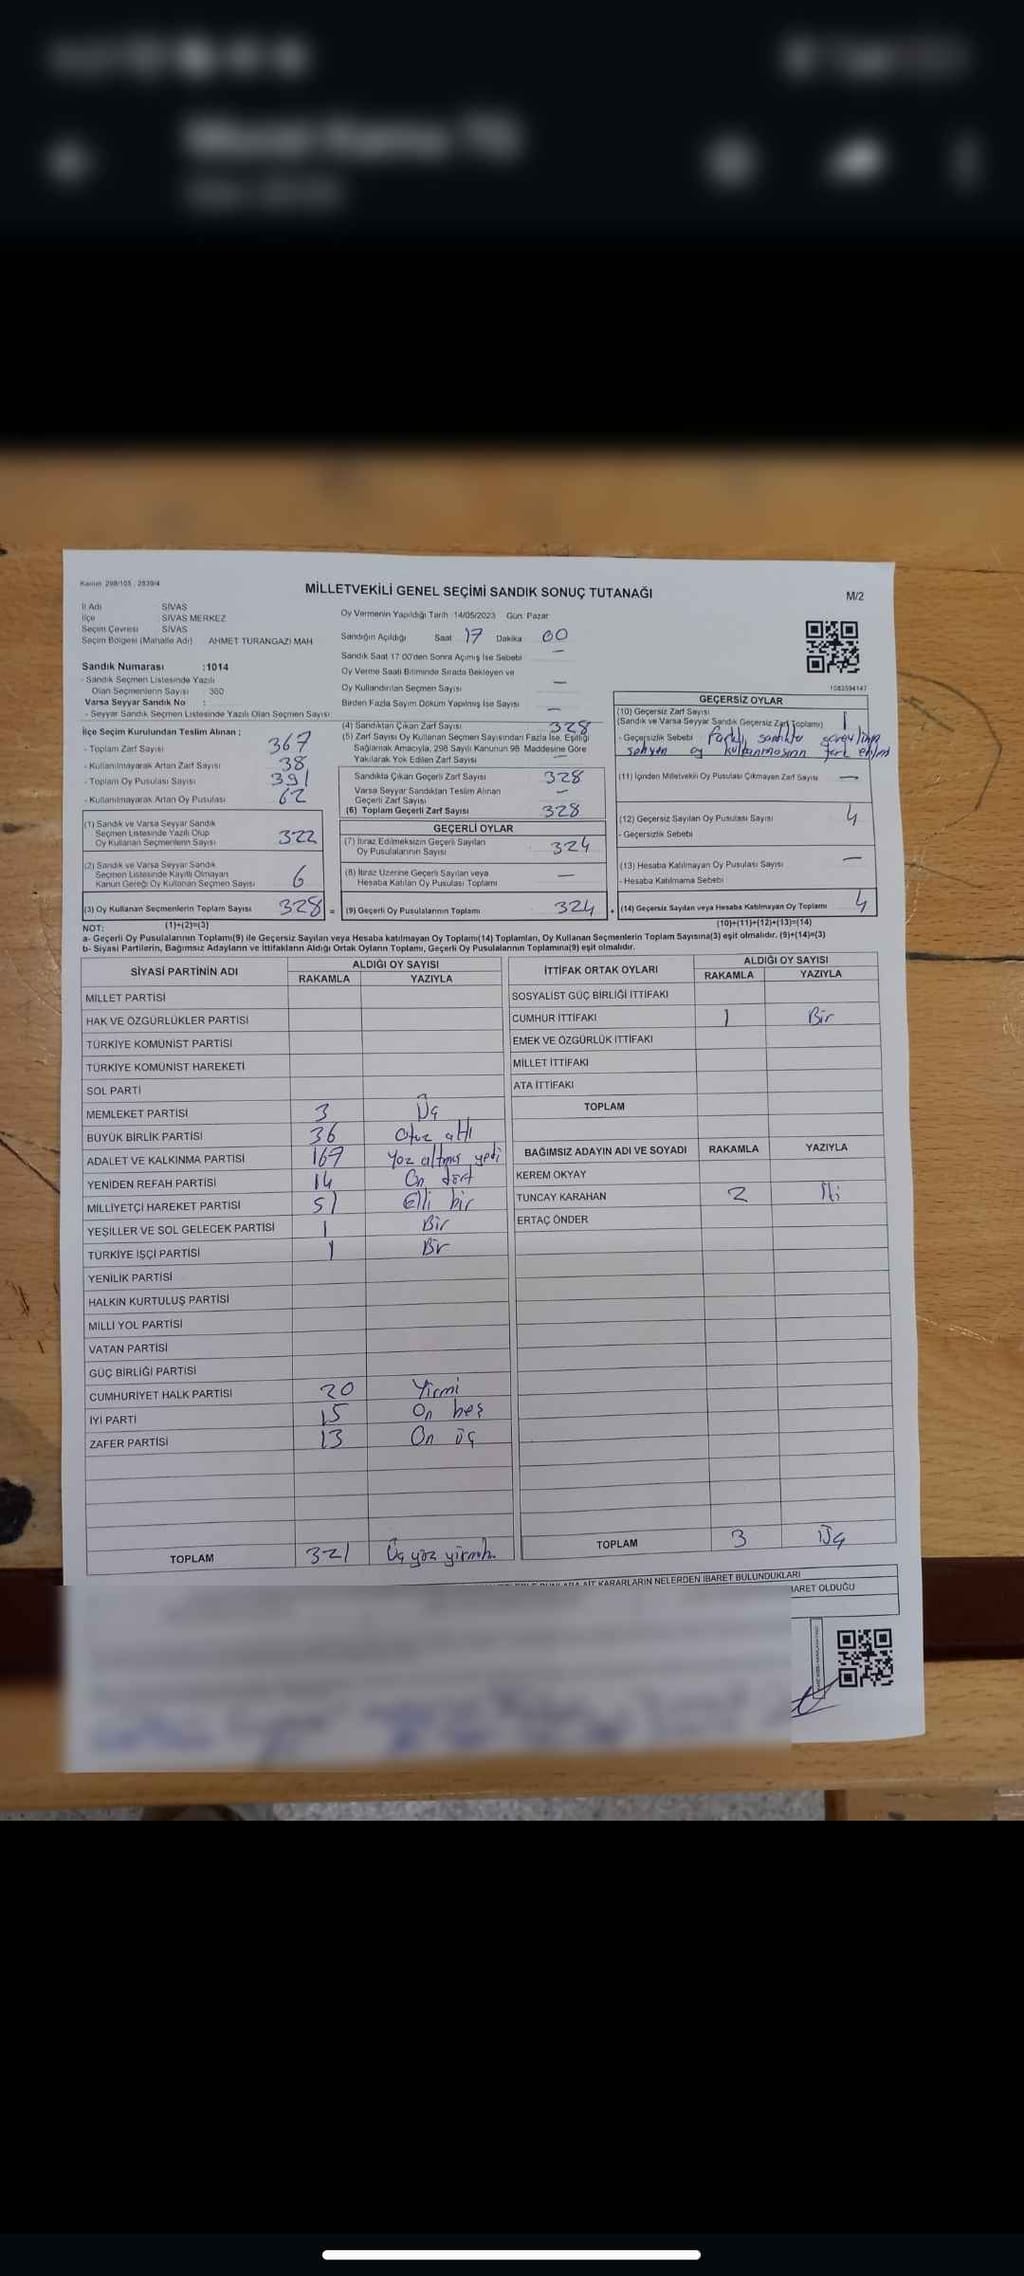 Kanun 298/105, 2839/4
MİLLETVEKİLİ GENEL SEÇİMİ SANDIK SONUÇ TUTANAĞI
M/2
İl Adı SİVAS
İlçe SİVAS MERKEZ
Seçim Çevresi SİVAS
Seçim Bölgesi (Mahalle Adı) AHMET TURANGAZİ MAH
Sandık Numarası :1014
- Sandık Seçmen Listesinde Yazılı
Olan Seçmenlerin Sayısı : 360
Varsa Seyyar Sandık No :
- Seyyar Sandık Seçmen Listesinde Yazılı Olan Seçmen Sayısı:
İlçe Seçim Kurulundan Teslim Alınan ;
- Toplam Zarf Sayısı 367
- Kullanılmayarak Artan Zarf Sayısı 38
- Toplam Oy Pusulası Sayısı 391
- Kullanılmayarak Artan Oy Pusulası 62
(1) Sandık ve Varsa Seyyar Sandık
Seçmen Listesinde Yazılı Olup
Oy Kullanan Seçmenlerin Sayısı 322
(2) Sandık ve Varsa Seyyar Sandık
Seçmen Listesinde Kayıtlı Olmayan
Kanun Gereği Oy Kullanan Seçmen Sayısı 6
(3) Oy Kullanan Seçmenlerin Toplam Sayısı 328 =
Oy Vermenin Yapıldığı Tarih 14/05/2023 Gün Pazar
Sandığın Açıldığı Saat 17 Dakika 00
Sandık Saat 17 00'den Sonra Açımış İse Sebebi —
Oy Verme Saati Bitiminde Sırada Bekleyen ve
Oy Kullandırılan Seçmen Sayısı —
Birden Fazla Sayım Döküm Yapılmış İse Sayısı —
(4) Sandıktan Çıkan Zarf Sayısı 328
(5) Zarf Sayısı Oy Kullanan Seçmen Sayısından Fazla İse, Eşitliği
Sağlamak Amacıyla, 298 Sayılı Kanunun 98 Maddesine Göre
Yakılarak Yok Edilen Zarf Sayısı —
Sandıkta Çıkan Geçerli Zarf Sayısı 328
Varsa Seyyar Sandıktan Teslim Alınan
Geçerli Zarf Sayısı —
(6) Toplam Geçerli Zarf Sayısı 328
GEÇERLİ OYLAR
(7) İtiraz Edilmeksizin Geçerli Sayılan
Oy Pusulalarının Sayısı 324
(8) İtiraz Üzerine Geçerli Sayılan veya
Hesaba Katılan Oy Pusulası Toplamı —
(9) Geçerli Oy Pusulalarının Toplamı 324 +
1083594147
GEÇERSİZ OYLAR
(10) Geçersiz Zarf Sayısı
(Sandık ve Varsa Seyyar Sandık Geçersiz Zarf Toplamı) 1
- Geçersizlik Sebebi Farklı sandıkta
oy kullanmasının
(11) İçinden Milletvekili Oy Pusulası Çıkmayan Zarf Sayısı —
(12) Geçersiz Sayılan Oy Pusulası Sayısı 4
- Geçersizlik Sebebi
(13) Hesaba Katılmayan Oy Pusulası Sayısı —
- Hesaba Katılmama Sebebi
(14) Geçersiz Sayılan veya Hesaba Katılmayan Oy Toplamı 4
NOT: (1)+(2)=(3) (10)+(11)+(12)+(13)=(14)
a- Geçerli Oy Pusulalarının Toplamı(9) ile Geçersiz Sayılan veya Hesaba katılmayan Oy Toplamı(14) Toplamları, Oy Kullanan Seçmenlerin Toplam Sayısına(3) eşit olmalıdır. (9)+(14)=(3)
b- Siyasi Partilerin, Bağımsız Adayların ve İttifakların Aldığı Ortak Oyların Toplamı, Geçerli Oy Pusulalarının Toplamına(9) eşit olmalıdır.
SİYASİ PARTİNİN ADI ALDIĞI OY SAYISI
RAKAMLA YAZIYLA
MİLLET PARTİSİ
HAK VE ÖZGÜRLÜKLER PARTİSİ
TÜRKİYE KOMÜNİST PARTİSİ
TÜRKİYE KOMÜNİST HAREKETİ
SOL PARTİ
MEMLEKET PARTİSİ 3 Üç
BÜYÜK BİRLİK PARTİSİ 36 Otuz altı
ADALET VE KALKINMA PARTİSİ 167 Yüz altmış yedi
YENİDEN REFAH PARTİSİ 14 On dört
MİLLİYETÇİ HAREKET PARTİSİ 51 Elli bir
YEŞİLLER VE SOL GELECEK PARTİSİ 1 Bir
TÜRKİYE İŞÇİ PARTİSİ 1 Bir
YENİLİK PARTİSİ
HALKIN KURTULUŞ PARTİSİ
MİLLİ YOL PARTİSİ
VATAN PARTİSİ
GÜÇ BİRLİĞİ PARTİSİ
CUMHURİYET HALK PARTİSİ 20 Yirmi
İYİ PARTİ 15 On beş
ZAFER PARTİSİ 13 On üç
TOPLAM 321 Üç yüz yirmi
İTTİFAK ORTAK OYLARI ALDIĞI OY SAYISI
RAKAMLA YAZIYLA
SOSYALİST GÜÇ BİRLİĞİ İTTİFAKI
CUMHUR İTTİFAKI 1 Bir
EMEK VE ÖZGÜRLÜK İTTİFAKI
MİLLET İTTİFAKI
ATA İTTİFAKI
TOPLAM
BAĞIMSIZ ADAYIN ADI VE SOYADI RAKAMLA YAZIYLA
KEREM OKYAY
TUNCAY KARAHAN 2 İki
ERTAÇ ÖNDER
TOPLAM 3 Üç
AİT KARARLARIN NELERDEN İBARET BULUNDUKLARI
BARET OLDUĞU